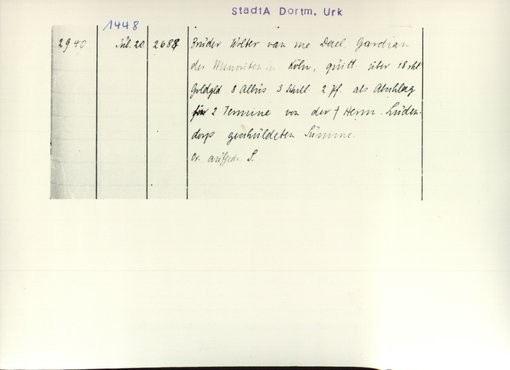 StadtA Dortm. Urk
1448
2940 Jul. 20 2688 Brüder Wolter van me Dael, Gardian
der Minoriten in Köln, quitt. über 18 rhl
Goldgld 8 Albus 3 Schill 2 Pf. als Abschlag
für 2 Termine von der † Herm. Lüden-
dorp geschuldeten Summe.
Or. aufgedr. S.